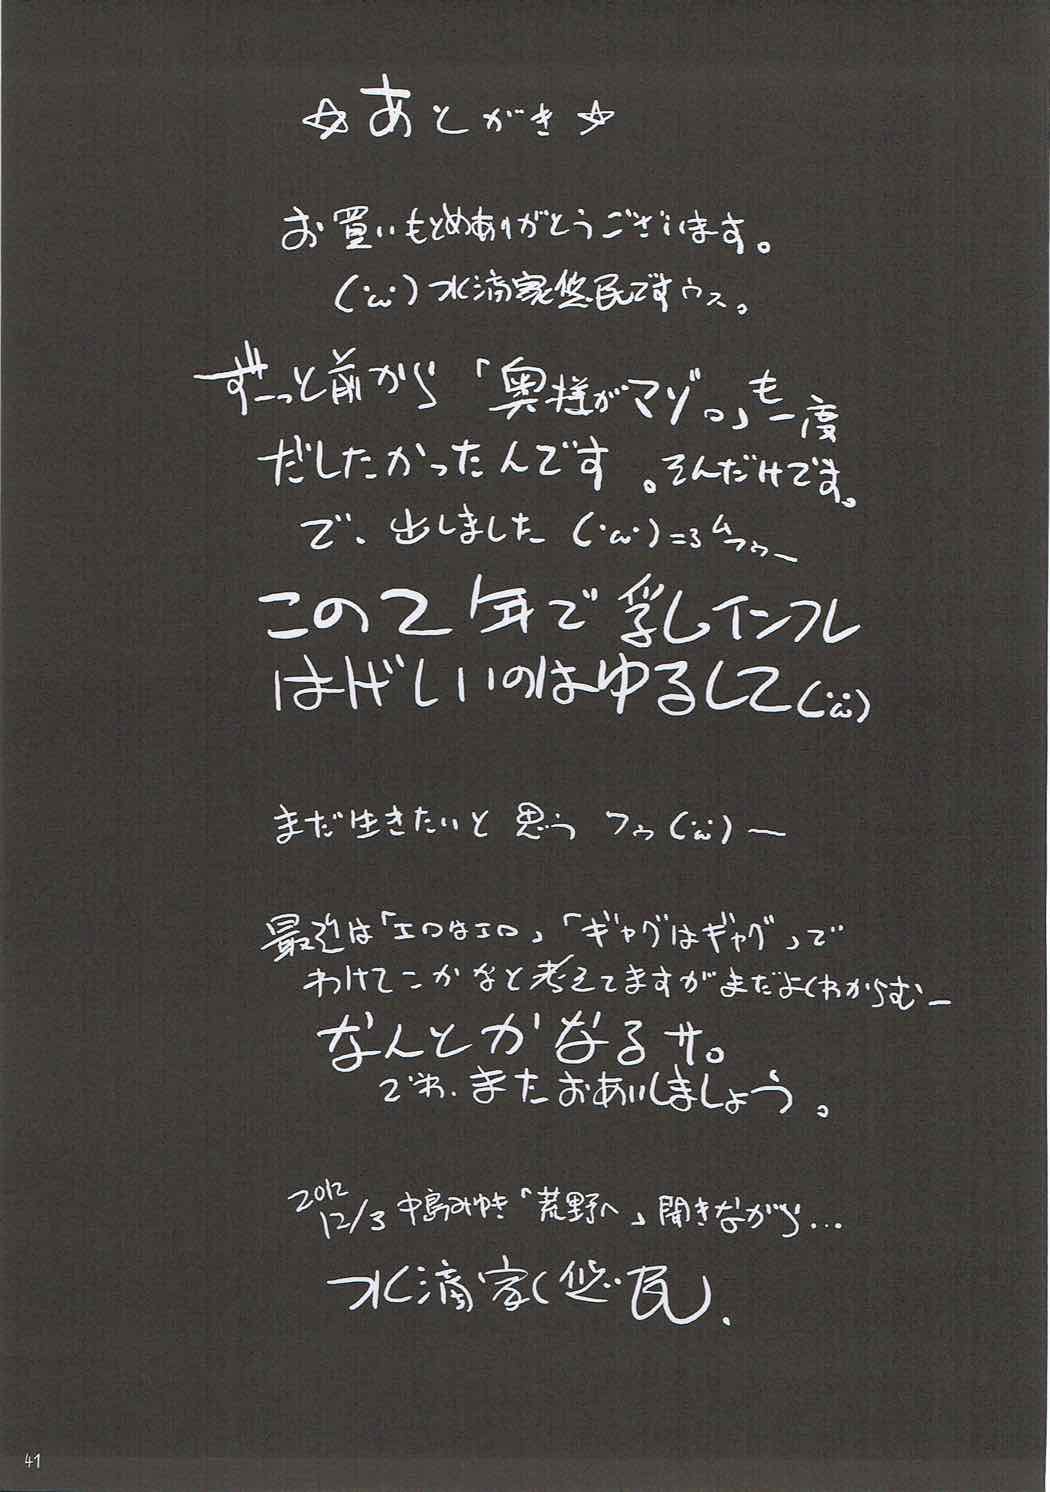 ☆あとがき☆
お買いもとめありがとうございます。
(´ω`)水滴家悠民ですウス。
ずーっと前から「奥様がマゾ。」も一度
だしたかったんです。そんだけです。
で、出しました (´ω`)=3 ムフゥー
この2年で乳しインフレ
はげしいのはゆるして(´ω`)
まだ生きたいと思う フゥ(´ω`)ー
最近は「エロはエロ」「ギャグはギャグ」で
わけてこかなと考えてますがまだよくわからむー
なんとかなるサ。
でわ、またおあいしましょう。
2012
12/3 中島みゆき「荒野へ」聞きながら...
水滴家悠民.
41